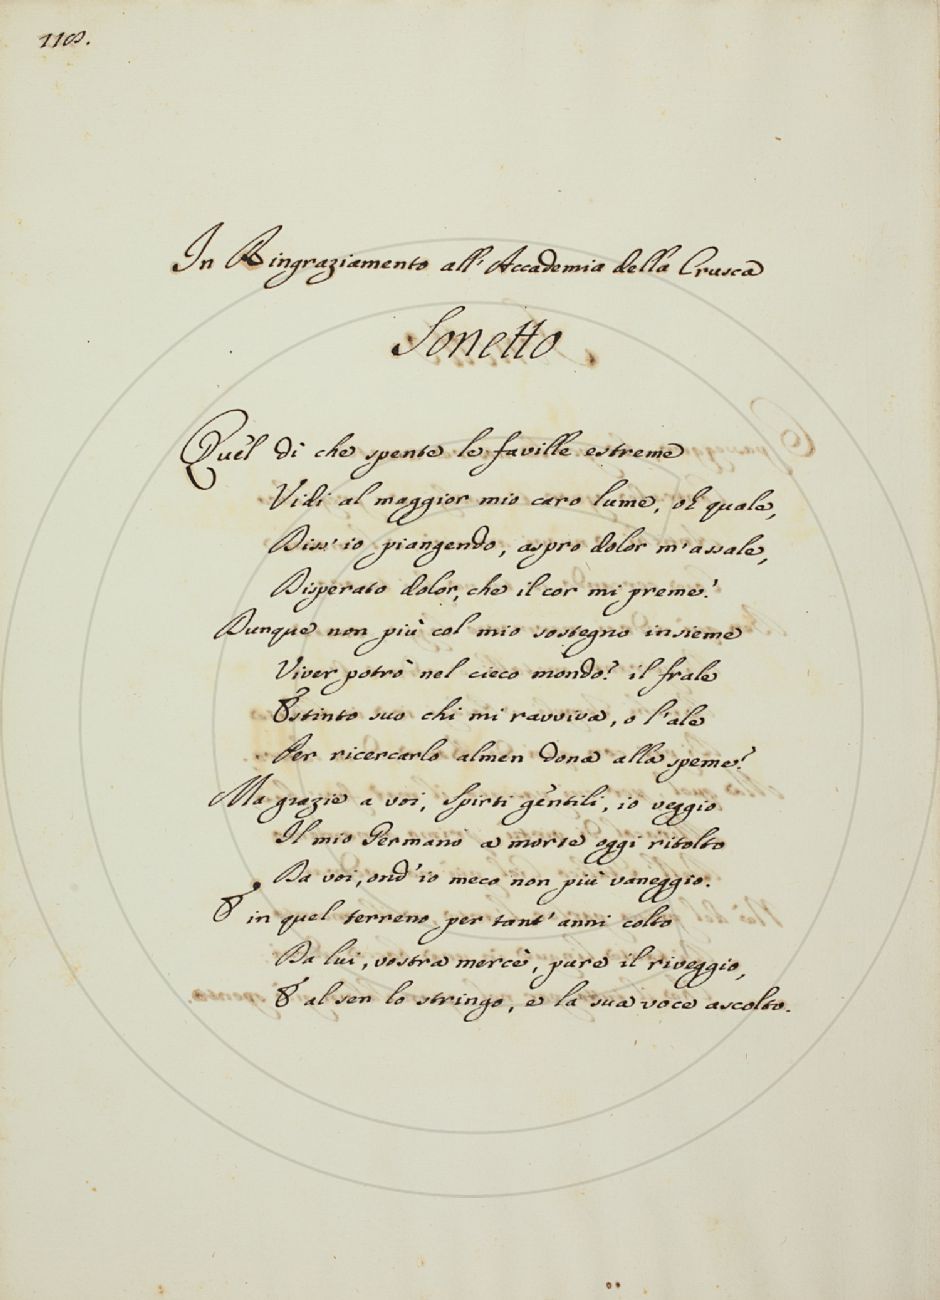 1108.
In Ringraziamento all' Accademia della Crusca
Sonetto
Quel dì che spente le faville estreme
Vidi al maggior mio caro lume, oh quale,
Diss' io piangendo, aspro dolor m' assale,
Disperato dolor, che il cor mi preme!
Dunque non più col mio sostegno insieme
Viver potrò nel cieco mondo? il frale
Estinto suo chi mi ravviva, o l' ale
Per ricercarlo almen dona alla speme?
Ma grazie a voi, Spirti gentili, io veggio
Il mio Germano a morte oggi ritolto
Da voi, ond' io meco non più vaneggio.
E in quel terreno per tant' anni colto
Da lui, vostra mercè, pure il riveggio,
E al sen lo stringo, e la sua voce ascolto.